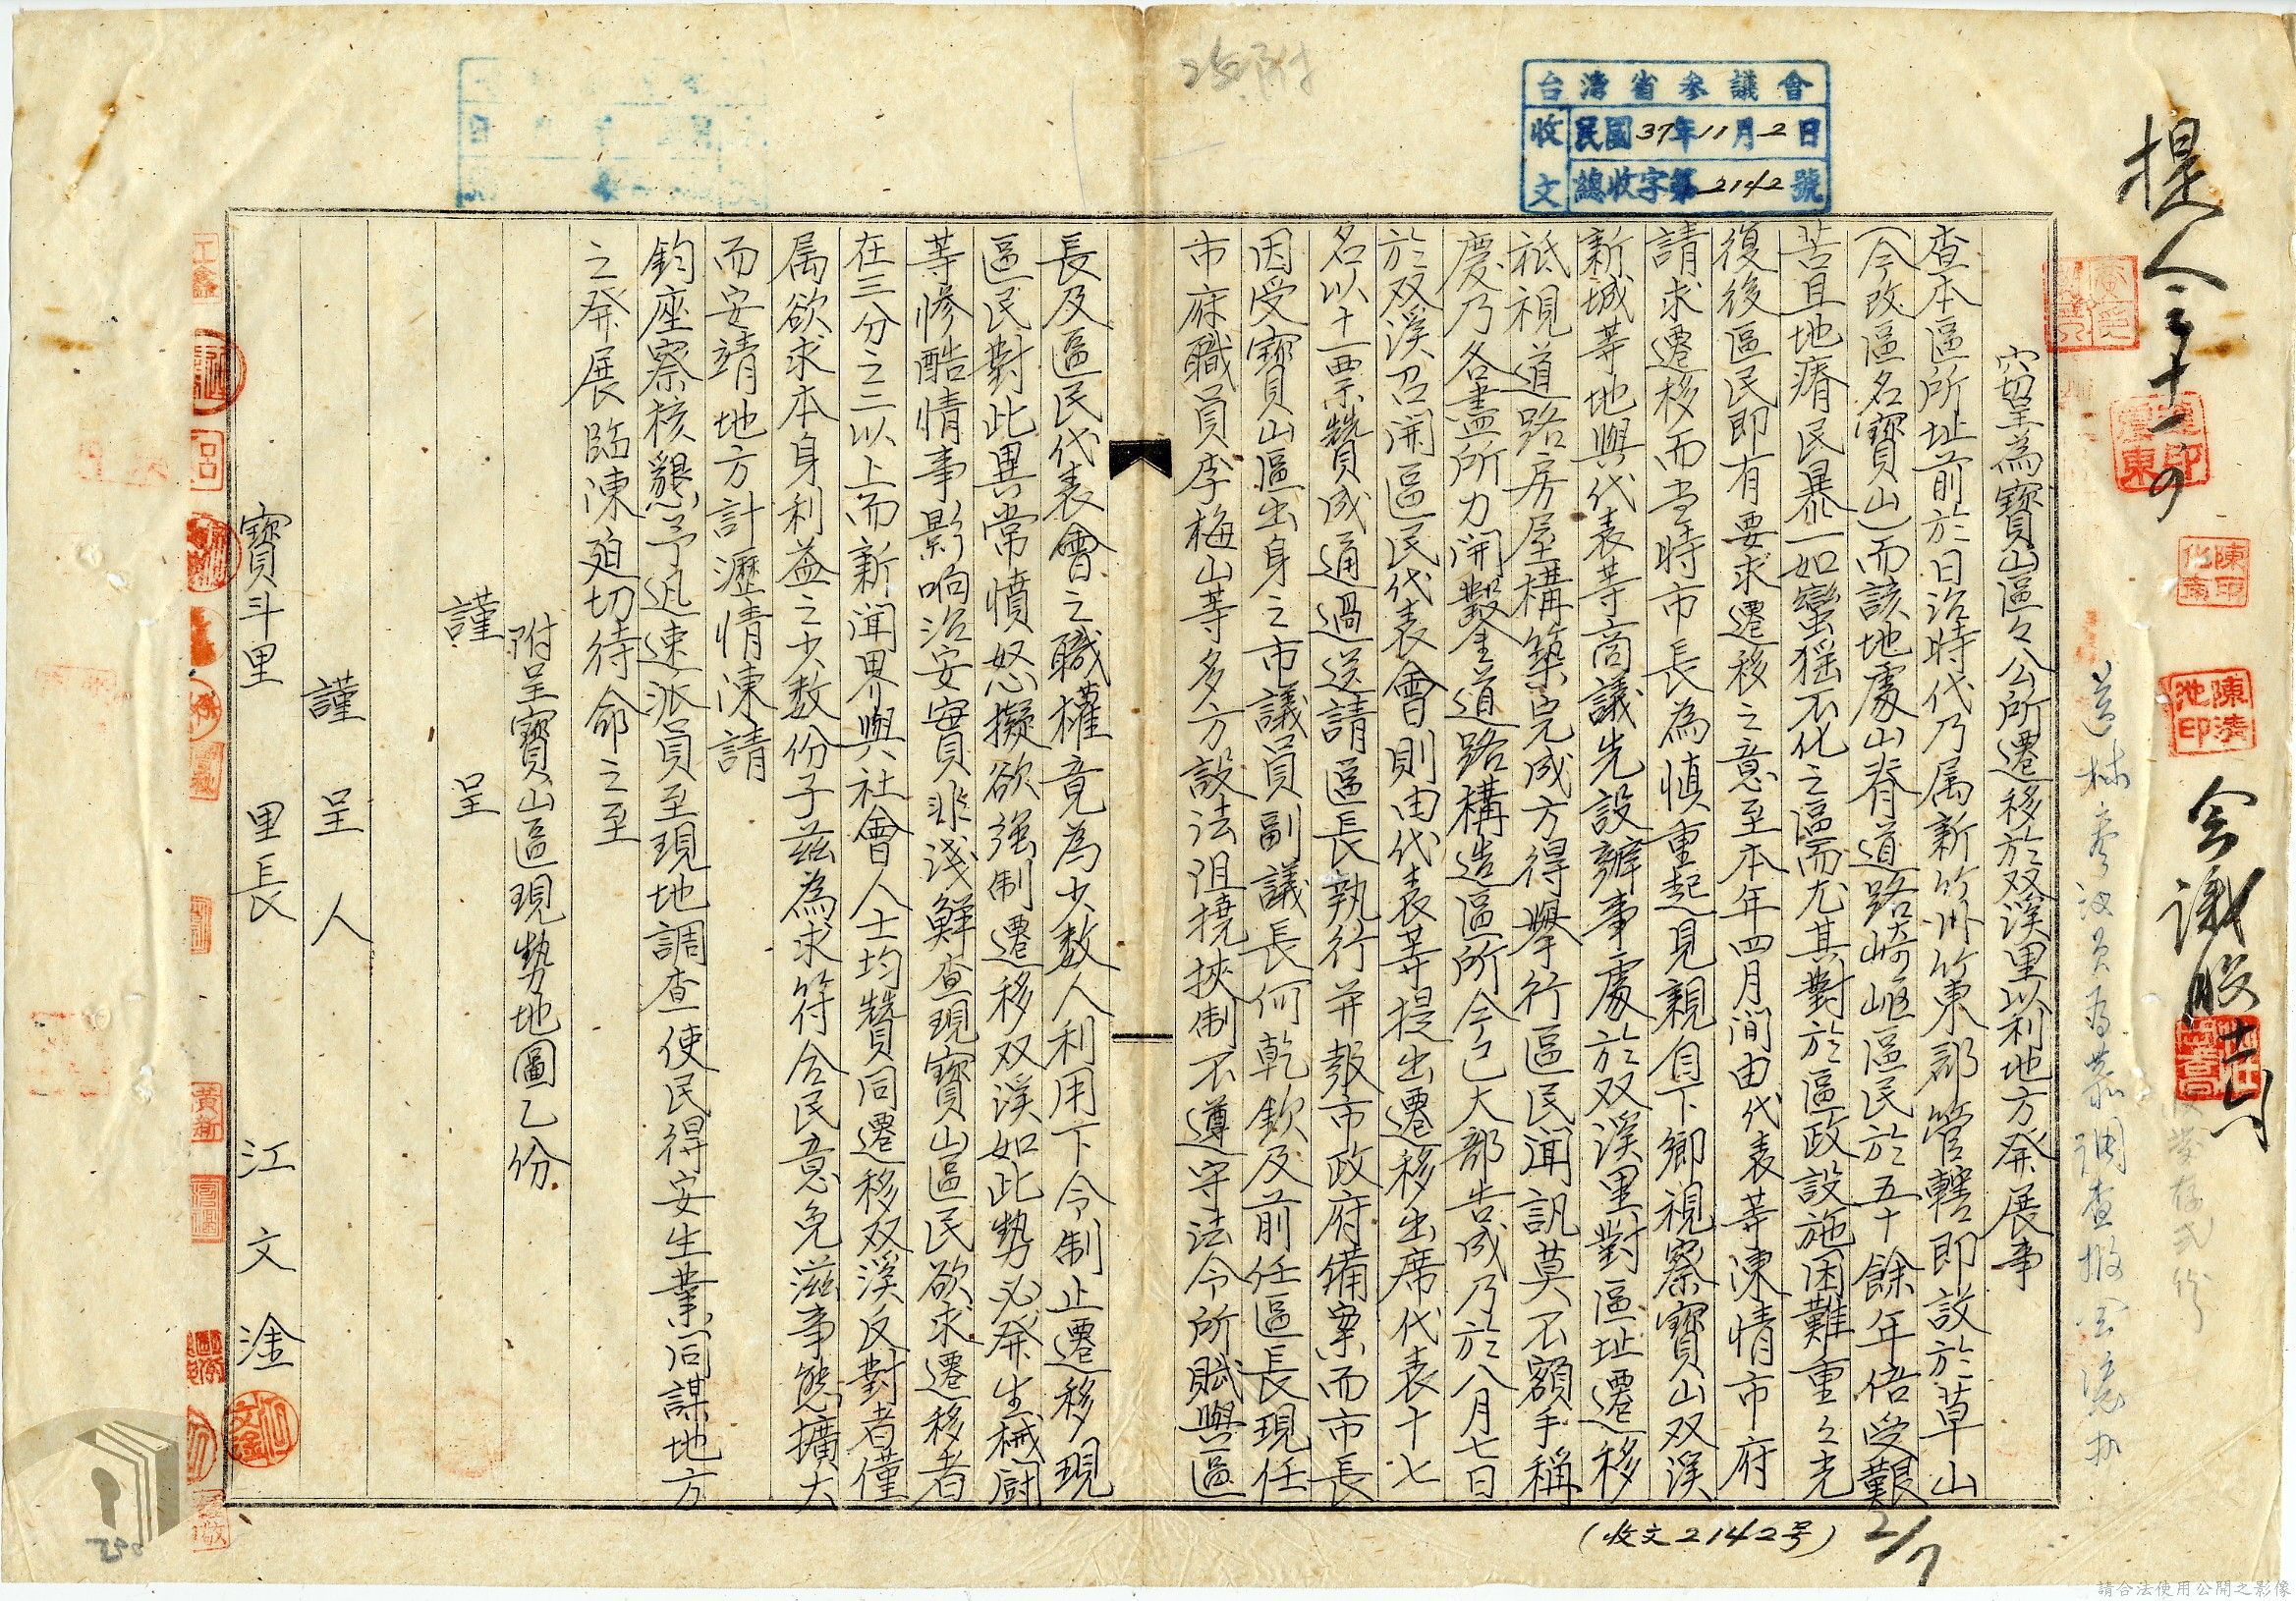 25附
台灣省參議會
收文
民國37年11月2日
總收字第2142號
提人三十一
会議股
竊呈為寶山區々公所遷移於双溪里以利地方発展事
查本區所址前於日治時代乃属新竹州竹東郡管轄即設於草山
(今改區名寶山)而該地處山脊道路崎嶇區民於五十餘年倍受艱
苦且地瘠民暴一如蠻猺不化之區而尤其對於區政設施困難重々光
復後區民即有要求遷移之意至本年四月間由代表等陳情市府
請求遷移而当時市長為慎重起見親自下鄉視察寶山双溪
新城等地與代表等商議先設辦事處於双溪里對區址遷移
祗視道路房屋構築完成方得舉行區民聞訊莫不額手稱
慶乃各盡所力開鑿道路構造區所今已大部告成乃於八月七日
於双溪召開區民代表會則由代表等提出遷移出席代表十七
名以十一票贊成通過送請區長執行并報市政府備案而市長
因受寶山區出身之市議員副議長何乾欽及前任區長現任
市府職員李梅山等多方設法阻撓挾制不遵守法令所賦與區
長及區民代表會之職權竟為少数人利用下令制止遷移現
區民對此異常憤怒擬欲强制遷移双溪如此勢必発生械鬪
等慘酷情事影响治安實非淺鮮查現寶山區民欲求遷移者
在三分之二以上而新聞界與社會人士均贊同遷移双溪反對者僅
属欲求本身利益之少数份子茲為求符合民意免滋事態擴大
而安靖地方計瀝情陳請
鈞座察核懇予迅速派員至現地調查使民得安生業而謀地方
之発展臨陳廹切待命之至
附呈寶山區現勢地圖乙份
謹 呈
謹 呈 人
寶斗里 里長 江文淦
(收文2142号)
2/7
請合法使用公開之影像